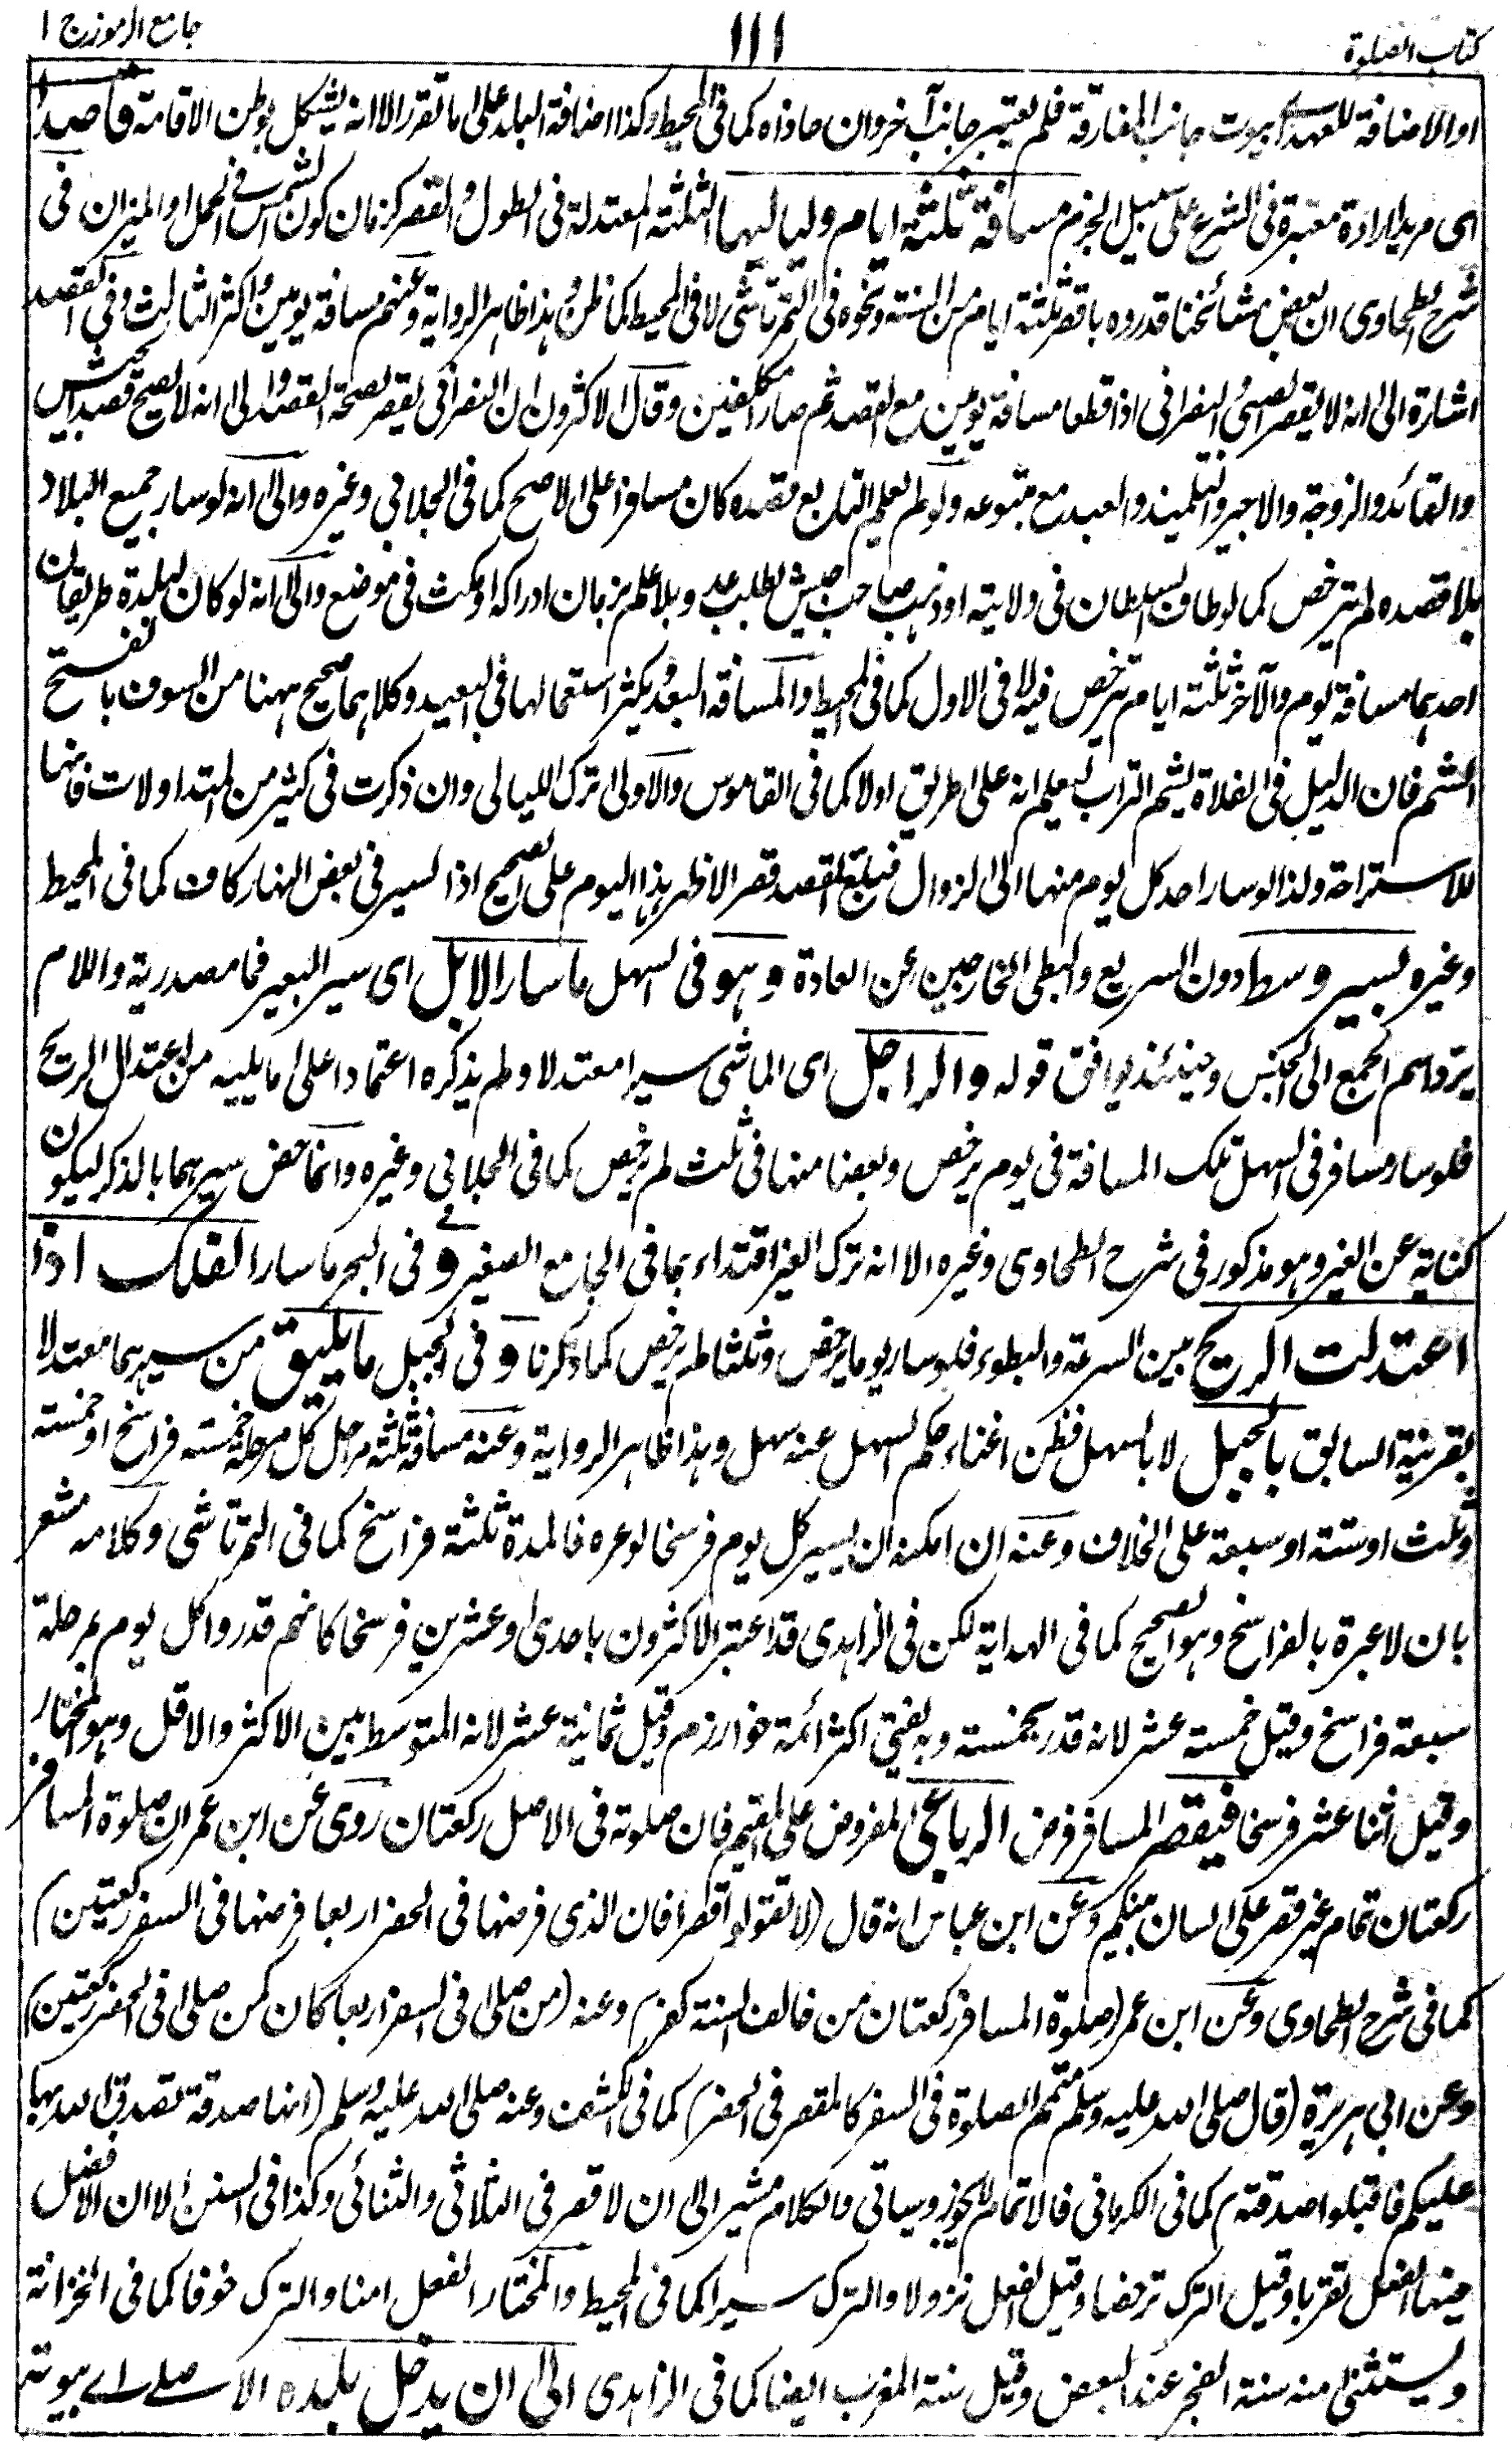 كتاب الصلوة
١١١
جامع الرموز ج ١
او الاضافة للعهد اى بيوت جانب المفارقة فلم يعتبر جانب آخر وان حاذاه كما فى المحيط وكذا اضافة البلد على ما تقرر الا انه يشكل بوطن الاقامة قاصدا
اى مريدا ارادة معتبرة فى الشرع على سبيل الجزم مسافة ثلثة ايام ولياليها الثلثة المعتدلة فى الطول والقصر كزمان كون الشمس فى الحمل او الميزان فى
شرح الطحاوى ان بعض مشائخنا قدروه باقصر ثلثة ايام من السنة ونحوه فى التمرتاشى لا فى المحيط كما ظن وهذا ظاهر الرواية وعنهم مسافة يومين واكثر الثالث وفى القصد
اشارة الى انه لا يقصر الصبى والنصرانى اذا قطعا مسافة يومين مع القصد ثم صارا مكلفين وقال الاكثرون ان النصرانى يقصر لصحة القصد والى انه لا يصح قصد الجيش
والقائد والزوجة والاجير والتلميذ والعبد مع متبوعه ولو لم يعلم التابع قصده كان مسافرا على الاصح كما فى الجلابى وغيره والى انه لو سار جميع البلاد
بلا قصده لم يترخص كما لو طاف السلطان فى ولايته او ذهب صاحب جيش لطلب عدو بلا علم بزمان ادراكه او مكث فى موضع والى انه لو كان لبلدة طريقان
احدهما مسافة يوم والآخر ثلثة ايام ترخص فيه لا فى الاول كما فى المحيط والمسافة البعد ويكثر استعمالها فى البعيد وكلاهما صحيح ههنا من السوف بالفتح
الشم فان الدليل فى الفلاة يشم التراب ليعلم انه على طريق اولا كما فى القاموس والاولى ترك الليالى وان ذكرت فى كثير من المتداولات فانها
للاستراحة ولذا لو سار احد كل يوم منها الى الزوال فبلغ المقصد قصر الا ظهر هذا اليوم على الصحيح اذ السير فى بعض النهار كاف كما فى المحيط
وغيره بسير وسط دون السريع والبطى الخارجين عن العادة وهو فى السهل ما سار الابل اى سير البعير فما مصدرية واللام
يرد اسم الجمع الى الجنس وحينئذ يوافق قوله والراجل اى الماشى سيرا معتدلا ولم يذكره اعتمادا على ما يليه من اعتدال الريح
فلو سار مسافر فى السهل تلك المسافة فى يوم يرخص وبعضا منها فى ثلث لم يرخص كما فى الجلابى وغيره وانما خص سيرهما بالذكر ليكون
كناية عن الغير وهو مذكور فى شرح الطحاوى وغيره الا انه ترك الغير اقتداء بما فى الجامع الصغير وفى البحر ما سار الفلك اذا
اعتدلت الريح بين السرعة والبطوء فلو سار يوما يرخص وثلثا لم يرخص كما ذكرنا وفى الجبل ما يليق من سيرهما معتدلا
بقرينة السابق بالجبل لا بالسهل فظن اغناء حكم السهل عنه سهل وهذا ظاهر الرواية وعنه مسافة ثلثة مراحل كل مرحلة خمسة فراسخ او خمسة
وثلث او ستة او سبعة على الخلاف وعنه ان امكنه ان يسير كل يوم فرسخا لوعره فالمدة ثلثة فراسخ كما فى التمرتاشى وكلامه مشعر
بان لا عبرة بالفراسخ وهو الصحيح كما فى الهداية لكن فى الزاهدى قد اعتبر الاكثرون باحدى وعشرين فرسخا كانهم قدروا كل يوم بمرحلة
سبعة فراسخ وقيل خمسة عشر لانه قدر بخمسة وبه يفتى اكثر ائمة خوارزم وقيل ثمانية عشر لانه المتوسط بين الاكثر والاقل وهو المختار
وقيل اثنا عشر فرسخا فيقصر المسافر فرض الرباعى المفروض على المقيم فان صلوته فى الاصل ركعتان روى عن ابن عمر ان صلوة المسافر
ركعتان تمام غير قصر على لسان نبيكم وعن ابن عباس انه قال (لا تقولوا قصرا فان الذى فرضها فى الحضر اربعا فرضها فى السفر ركعتين)
كما فى شرح الطحاوى وعن ابن عمر (صلوة المسافر ركعتان من خالف السنة كفر) وعنه (من صلى فى السفر اربعا كان كمن صلى فى الحضر ركعتين)
وعن ابى هريرة (قال صلى الله عليه وسلم متمم الصلوة فى السفر كالمقصر فى الحضر) كما فى الكشف وعنه صلى الله عليه وسلم (انها صدقة تصدق الله بها
عليكم فاقبلوا صدقته) كما فى الكرمانى فالاتمام لا يجوز وسياتى والكلام مشير الى ان لا قصر فى الثلاثى والثنائى وكذا فى السنن الا ان الافضل
فيها الفعل تقربا وقيل الترك ترخصا وقيل الفعل نزولا والترك سيرا كما فى المحيط والمختار الفعل امنا والترك خوفا كما فى الخزانة
ويستثنى منه سنة الفجر عند البعض وقيل سنة المغرب ايضا كما فى الزاهدى الى ان يدخل بلده الاصلى اى بيوته